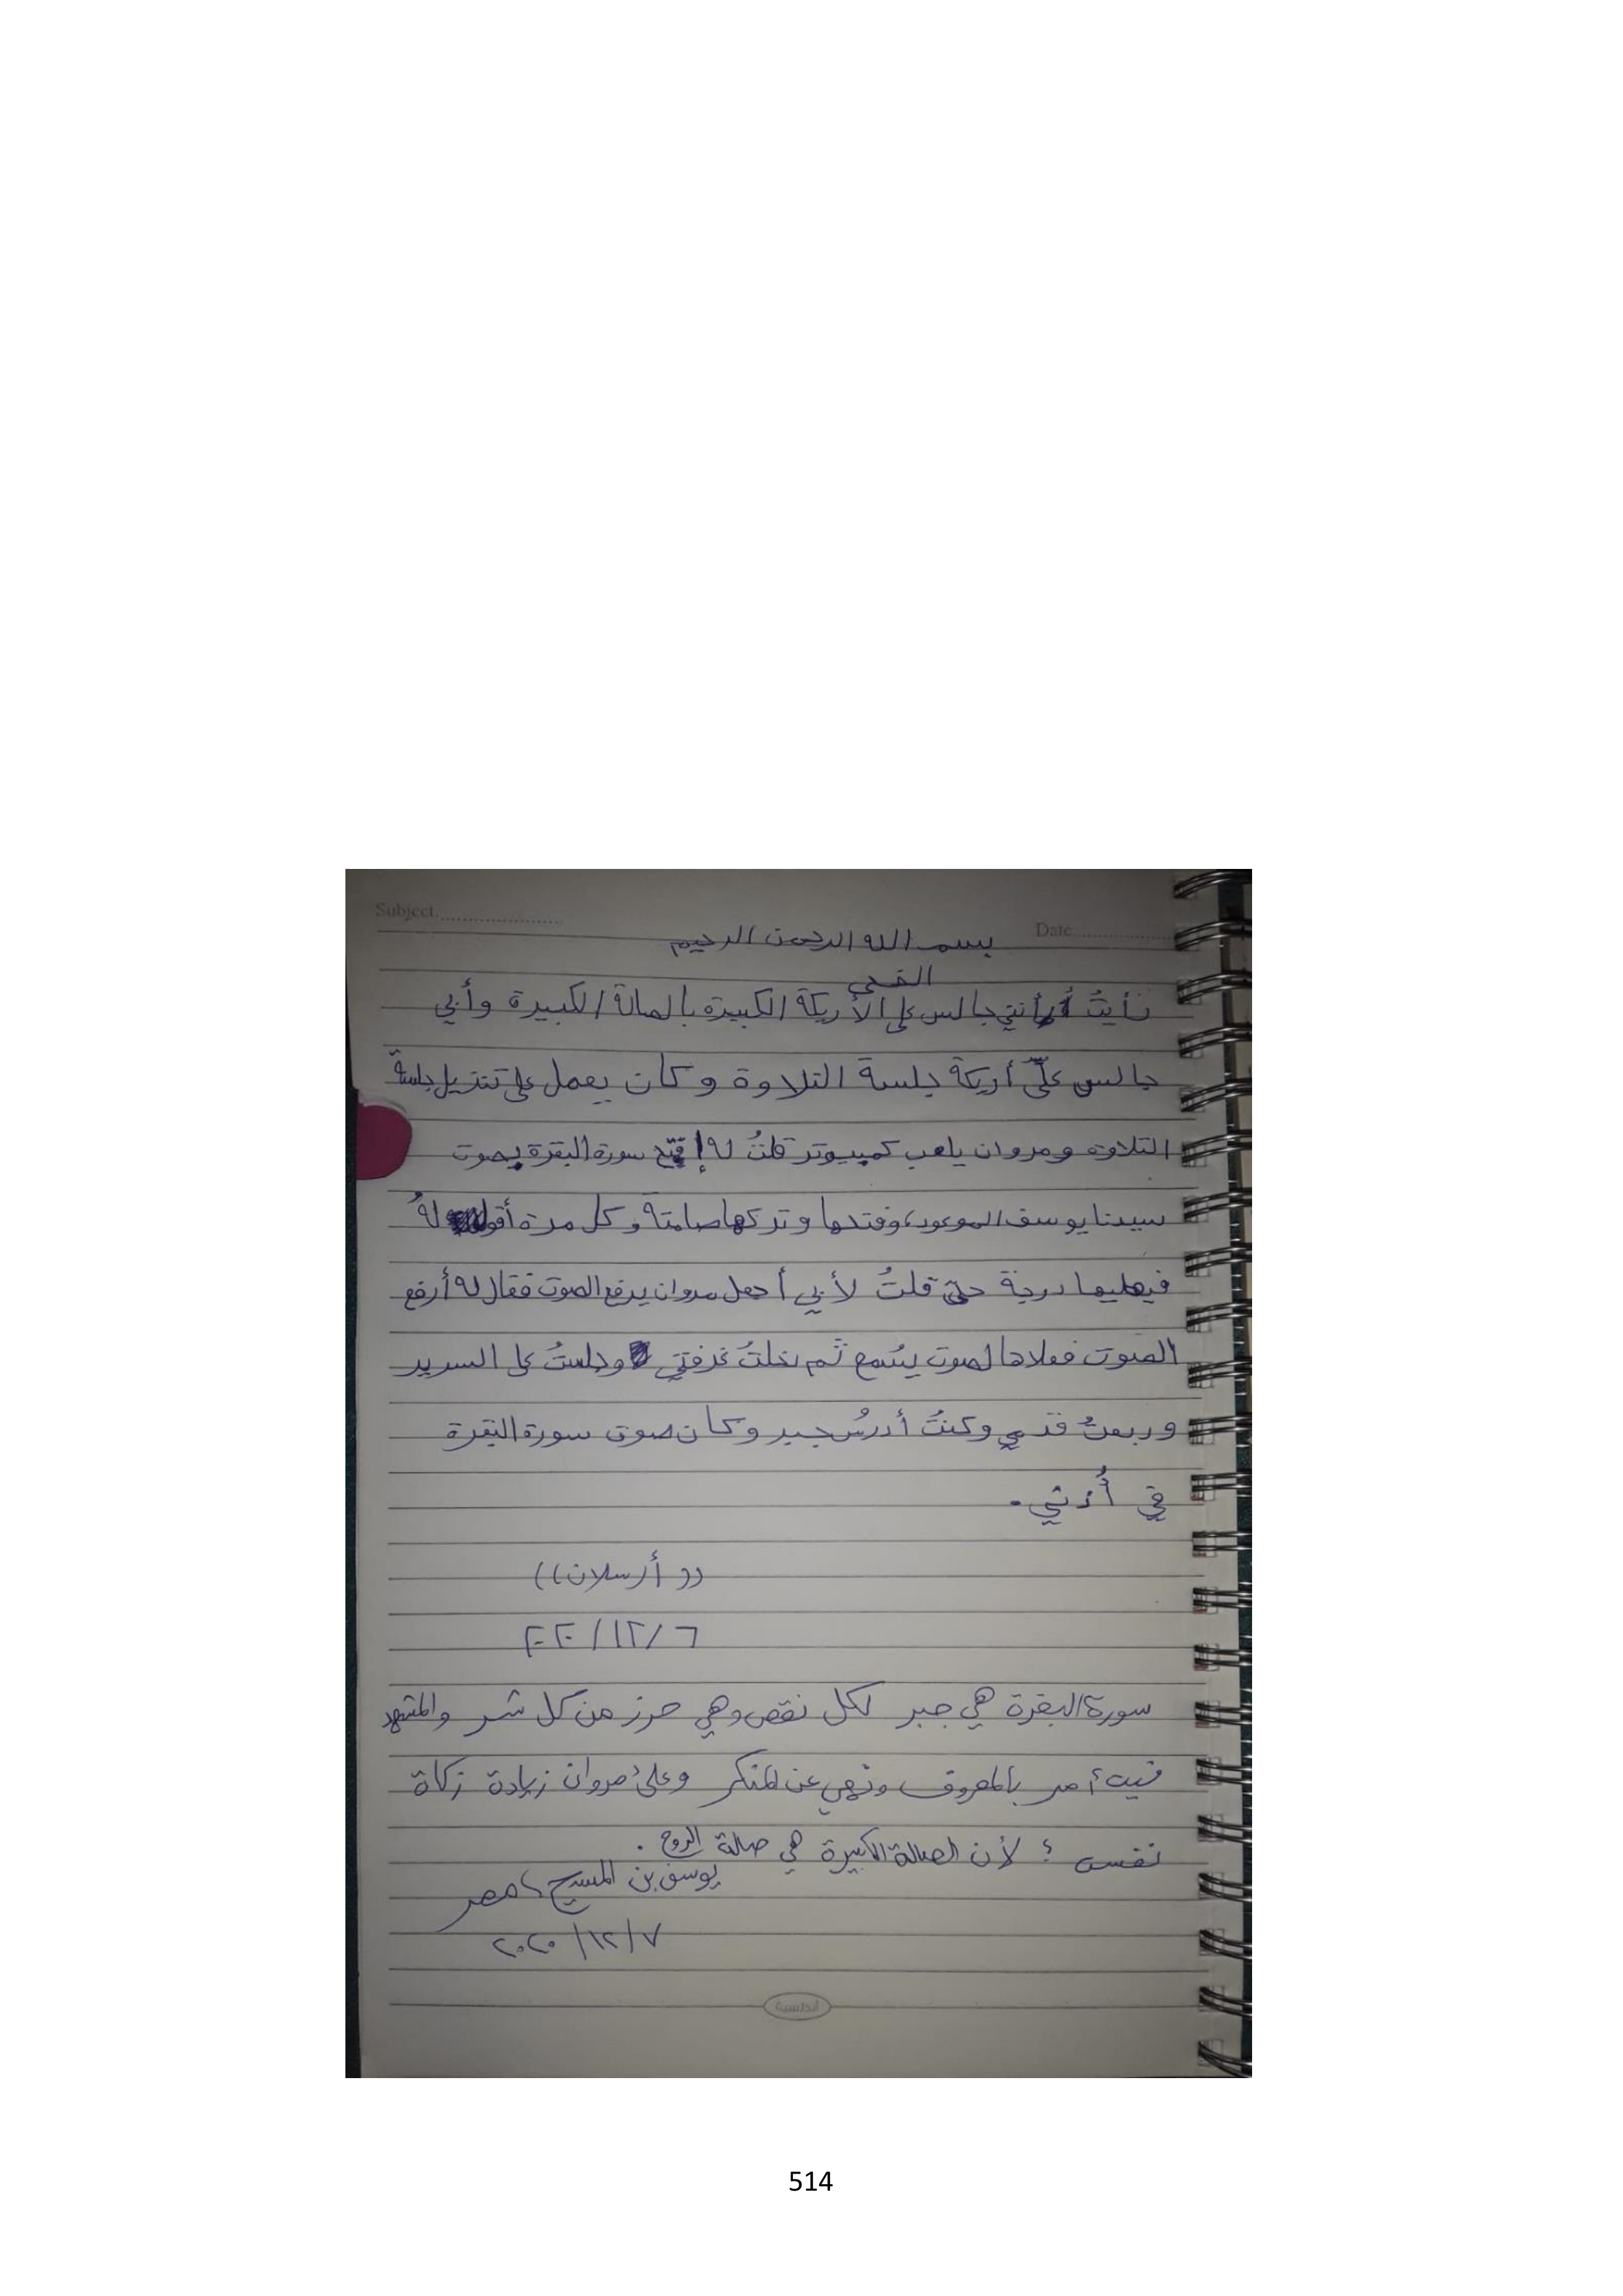 Subject
Date
بسم الله الرحمن الرحيم
الضحى
رأيتُ أنني جالس على الأريكة الكبيرة بالصالة الكبيرة وأبي
جالس على أريكة جلسة التلاوة وكان يعمل على تنزيل جلسة
التلاوة ومروان يلعب كمبيوتر قلتُ له إفتح سورة البقرة بصوت
سيدنا يوسف الموعود، وفتحها وتركها صامتة وكل مرة أقول لهُ
فيعليها درجة حتى قلتُ لأبي أجعل مروان يرفع الصوت فقال له أرفع
الصوت فعلاها لصوت يُسمع ثم دخلتُ غرفتي وجلستُ على السرير
وربعتُ قدمي وكنتُ أدرسُ جبر وكان صوت سورة البقرة
في أُذني.
((أرسلان))
٦/١٢/٢٠٢٠
سورة البقرة هي جبر لكل نقص وهي حرز من كل شر والمشهد
فيه أمر بالمعروف ونهي عن المنكر وعلى مروان زيادة زكاة
نفسه ؛ لأن الصالة الكبيرة هي صالة الروح .
يوسف بن المسيح، مصر
٧/١٢/٢٠٢٠
أندلسية
514